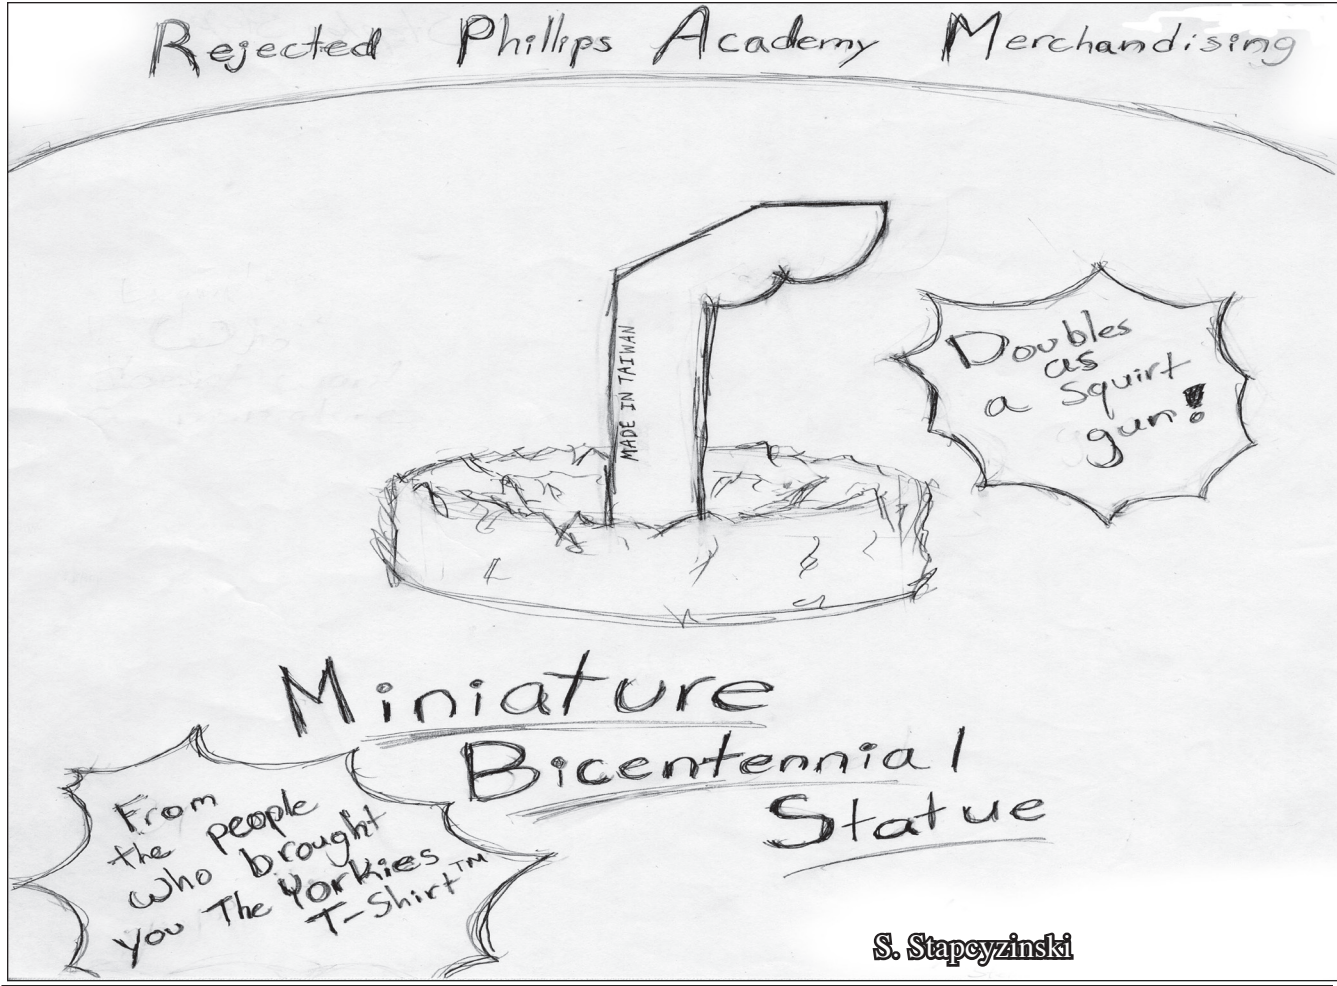 Rejected Phillips Academy Merchandising
MADE IN TAIWAN
Doubles
as
a squirt
gun!
Miniature
Bicentennial
Statue
From
the people
who brought
you The Yorkies
T-Shirt™
S. Stapcyzinski